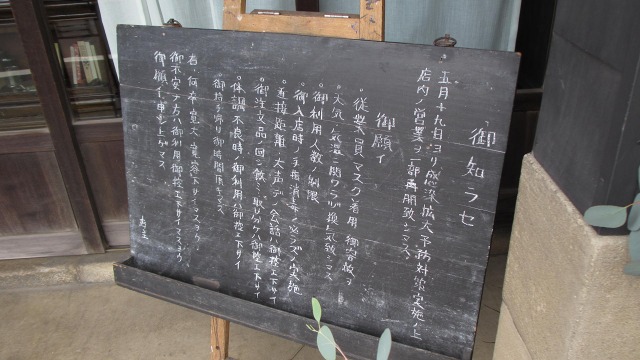 御知ラセ
五月十九日ヨリ感染拡大予防対策実施ノ上
店内ノ営業ヲ一部再開致シマス
御願イ
。従業員マスク着用御容赦ヲ
。天気、気温ニ関ワラズ換気致シマス
。御利用人数ノ制限
。御入店時ノ手指消毒ノ必ズノ実施
。直接距離、大声デノ会話ハ御控エ下サイ
。御注文品ノ回シ飲ミ、取リ分ケハ御控エ下サイ
。体調不良時ノ御利用ハ御控エ下サイ
。御持チ帰リ御時間頂キマス
皆何卒寛大ニ御容下サイマスヨウ
御不安ナ方ハ御利用御控エ下サイマスヨウ
御願イ申シ上ゲマス
店主